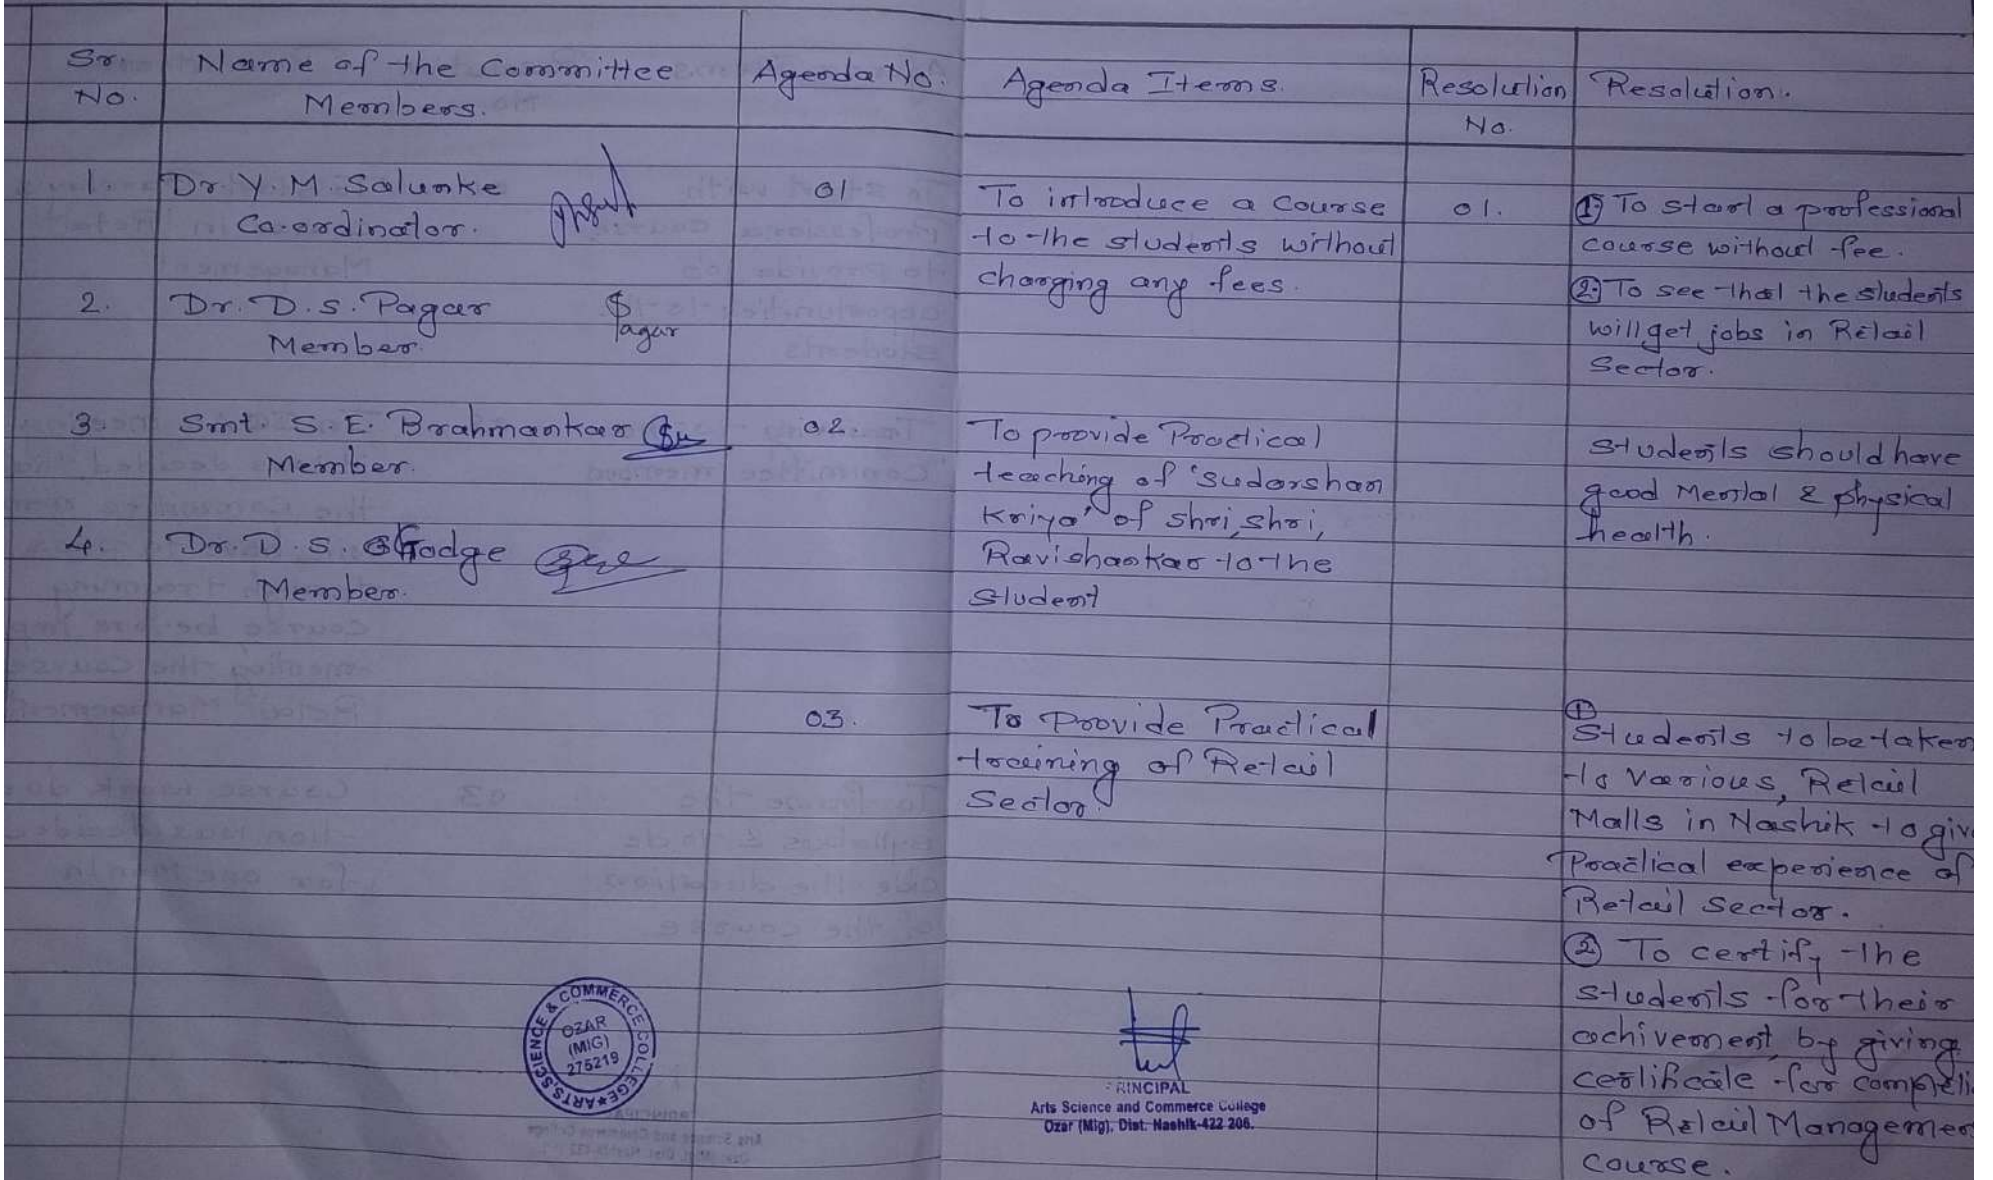 Sr. No.
Name of the Committee Members.
Agenda No.
Agenda Items.
Resolution No.
Resolution.
1. Dr. Y. M. Salunke
Co-ordinator.
2. Dr. D. S. Pagar
Pagar
Member.
3. Smt. S. E. Brahmankar
Member.
4. Dr. D. S. Ghodge
Member.
01
To introduce a course
to the students without
charging any fees.
01.
① To start a professional
course without fee.
② To see that the students
will get jobs in Retail
Sector.
02.
To provide Practical
teaching of 'Sudarshan
Kriya' of Shri, Shri,
Ravishankar to the
student
Students should have
good Mental & physical
health.
03.
To Provide Practical
training of Retail
Sector.
①
Students to be taken
to Various, Retail
Malls in Nashik to giv
Practical experience of
Retail Sector.
② To certify the
students for their
achivement, by giving
certificate for completi
of Retail Managemen
course.
ARTS, SCIENCE & COMMERCE COLLEGE
OZAR
(MIG)
275219
PRINCIPAL
Arts Science and Commerce College
Ozar (Mig), Dist. Nashik-422 206.